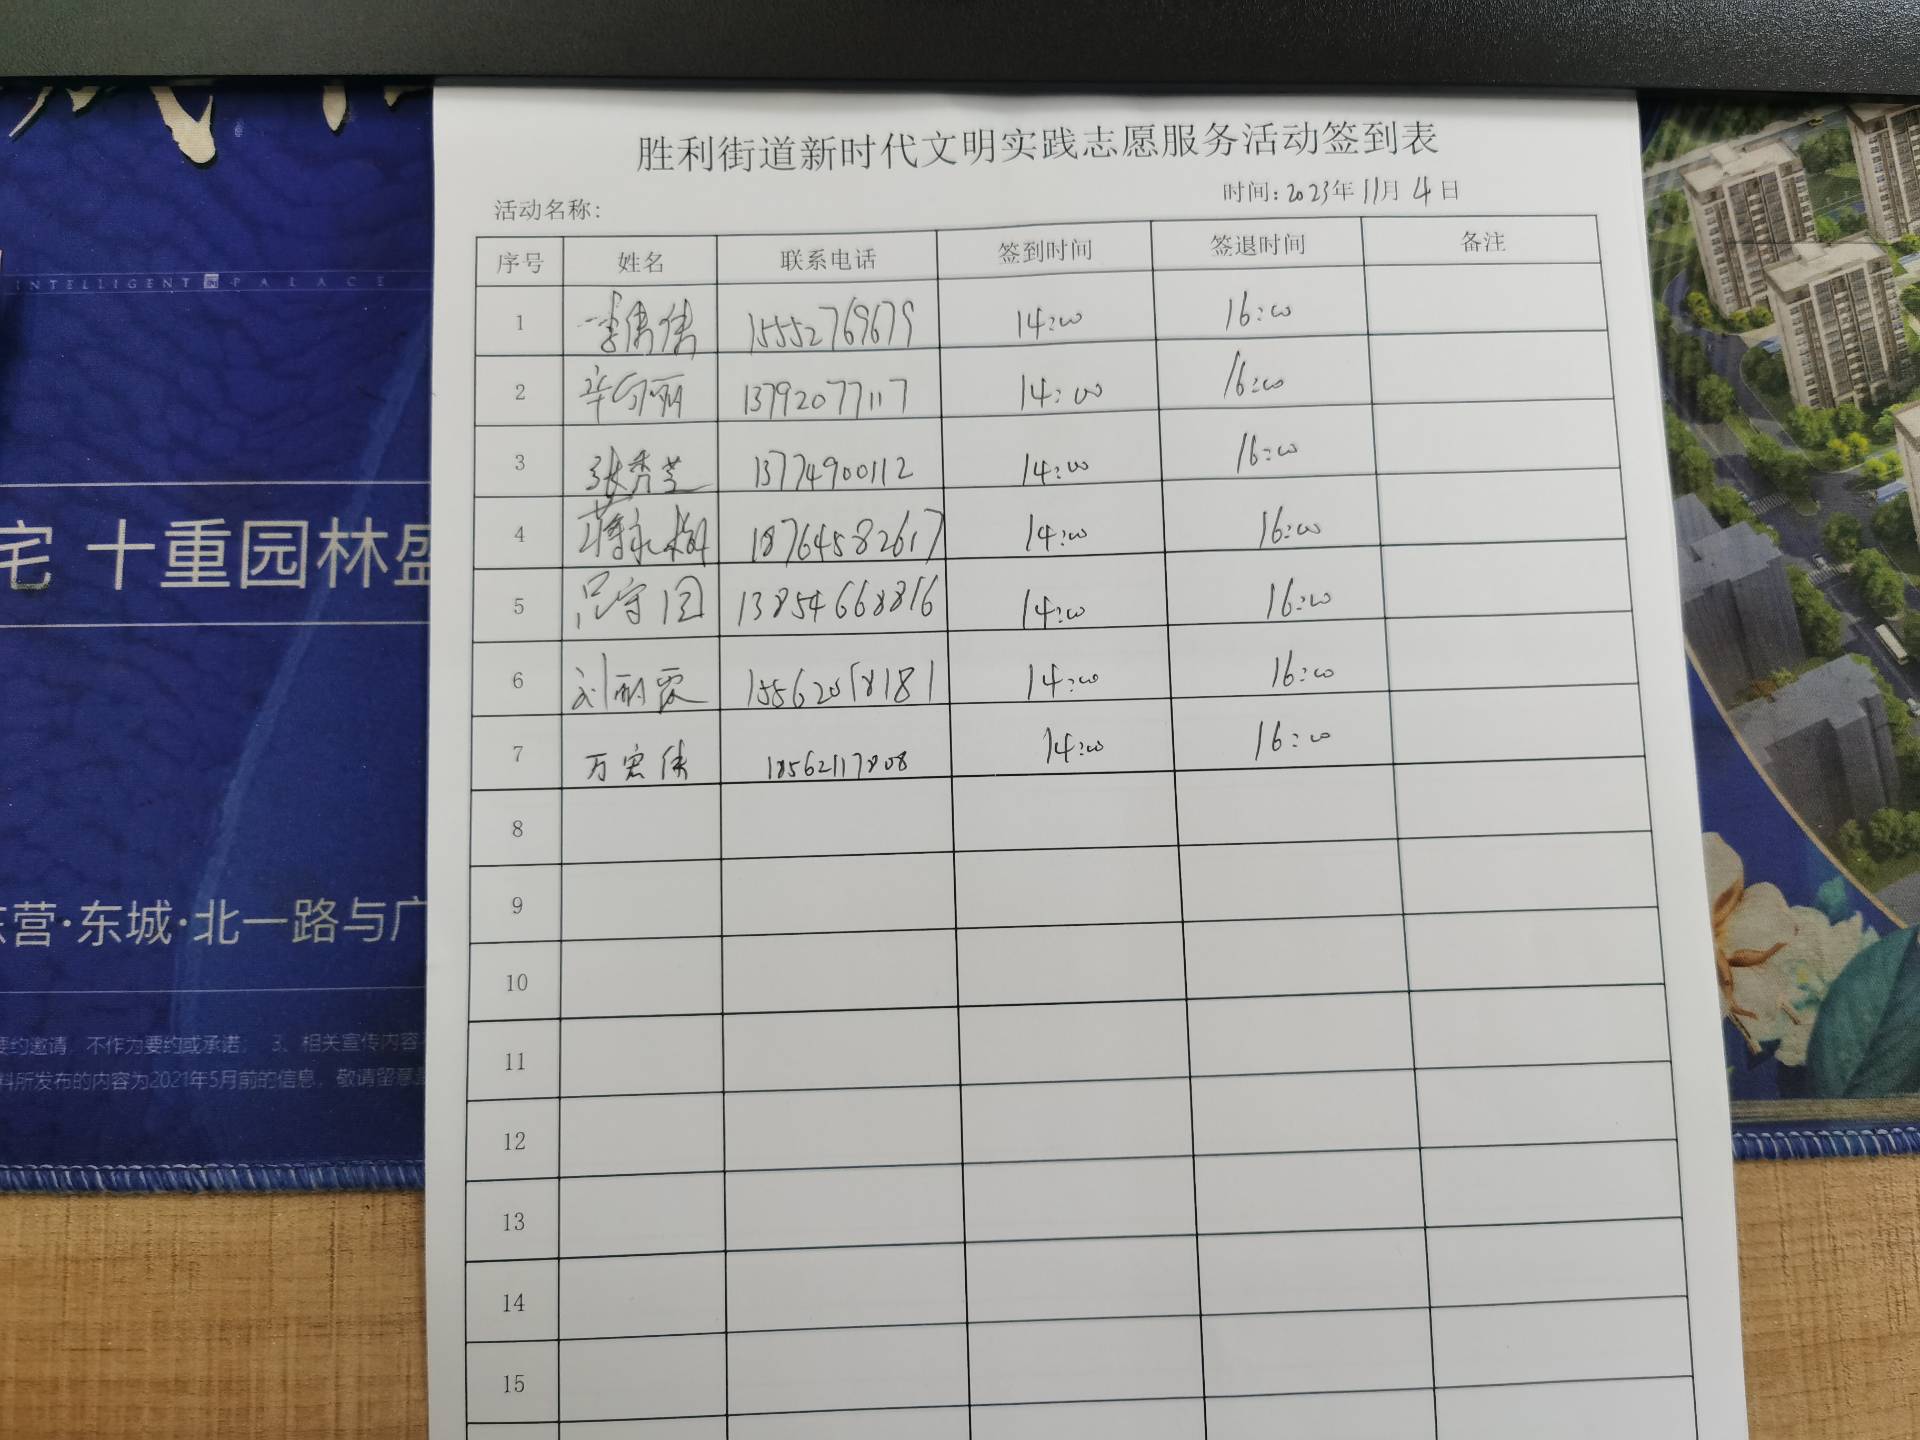 胜利街道新时代文明实践志愿服务活动签到表
活动名称:
时间: 2023年 11月 4日
序号 姓名 联系电话 签到时间 签退时间 备注
1 李倩倩 15552769679 14:00 16:00
2 13792077117 14:00 16:00
3 张秀芝 13774900112 14:00 16:00
4 18764582617 14:00 16:00
5 13854668816 14:00 16:00
6 刘丽霞 14:00 16:00
7 万宏伟 18562117808 14:00 16:00
8
9
10
11
12
13
14
15
INTELLIGENT PALACE
宅 十重园林盛
东营·东城·北一路与广
要约邀请, 不作为要约或承诺; 3、相关宣传内容
料所发布的内容为2021年5月前的信息, 敬请留意